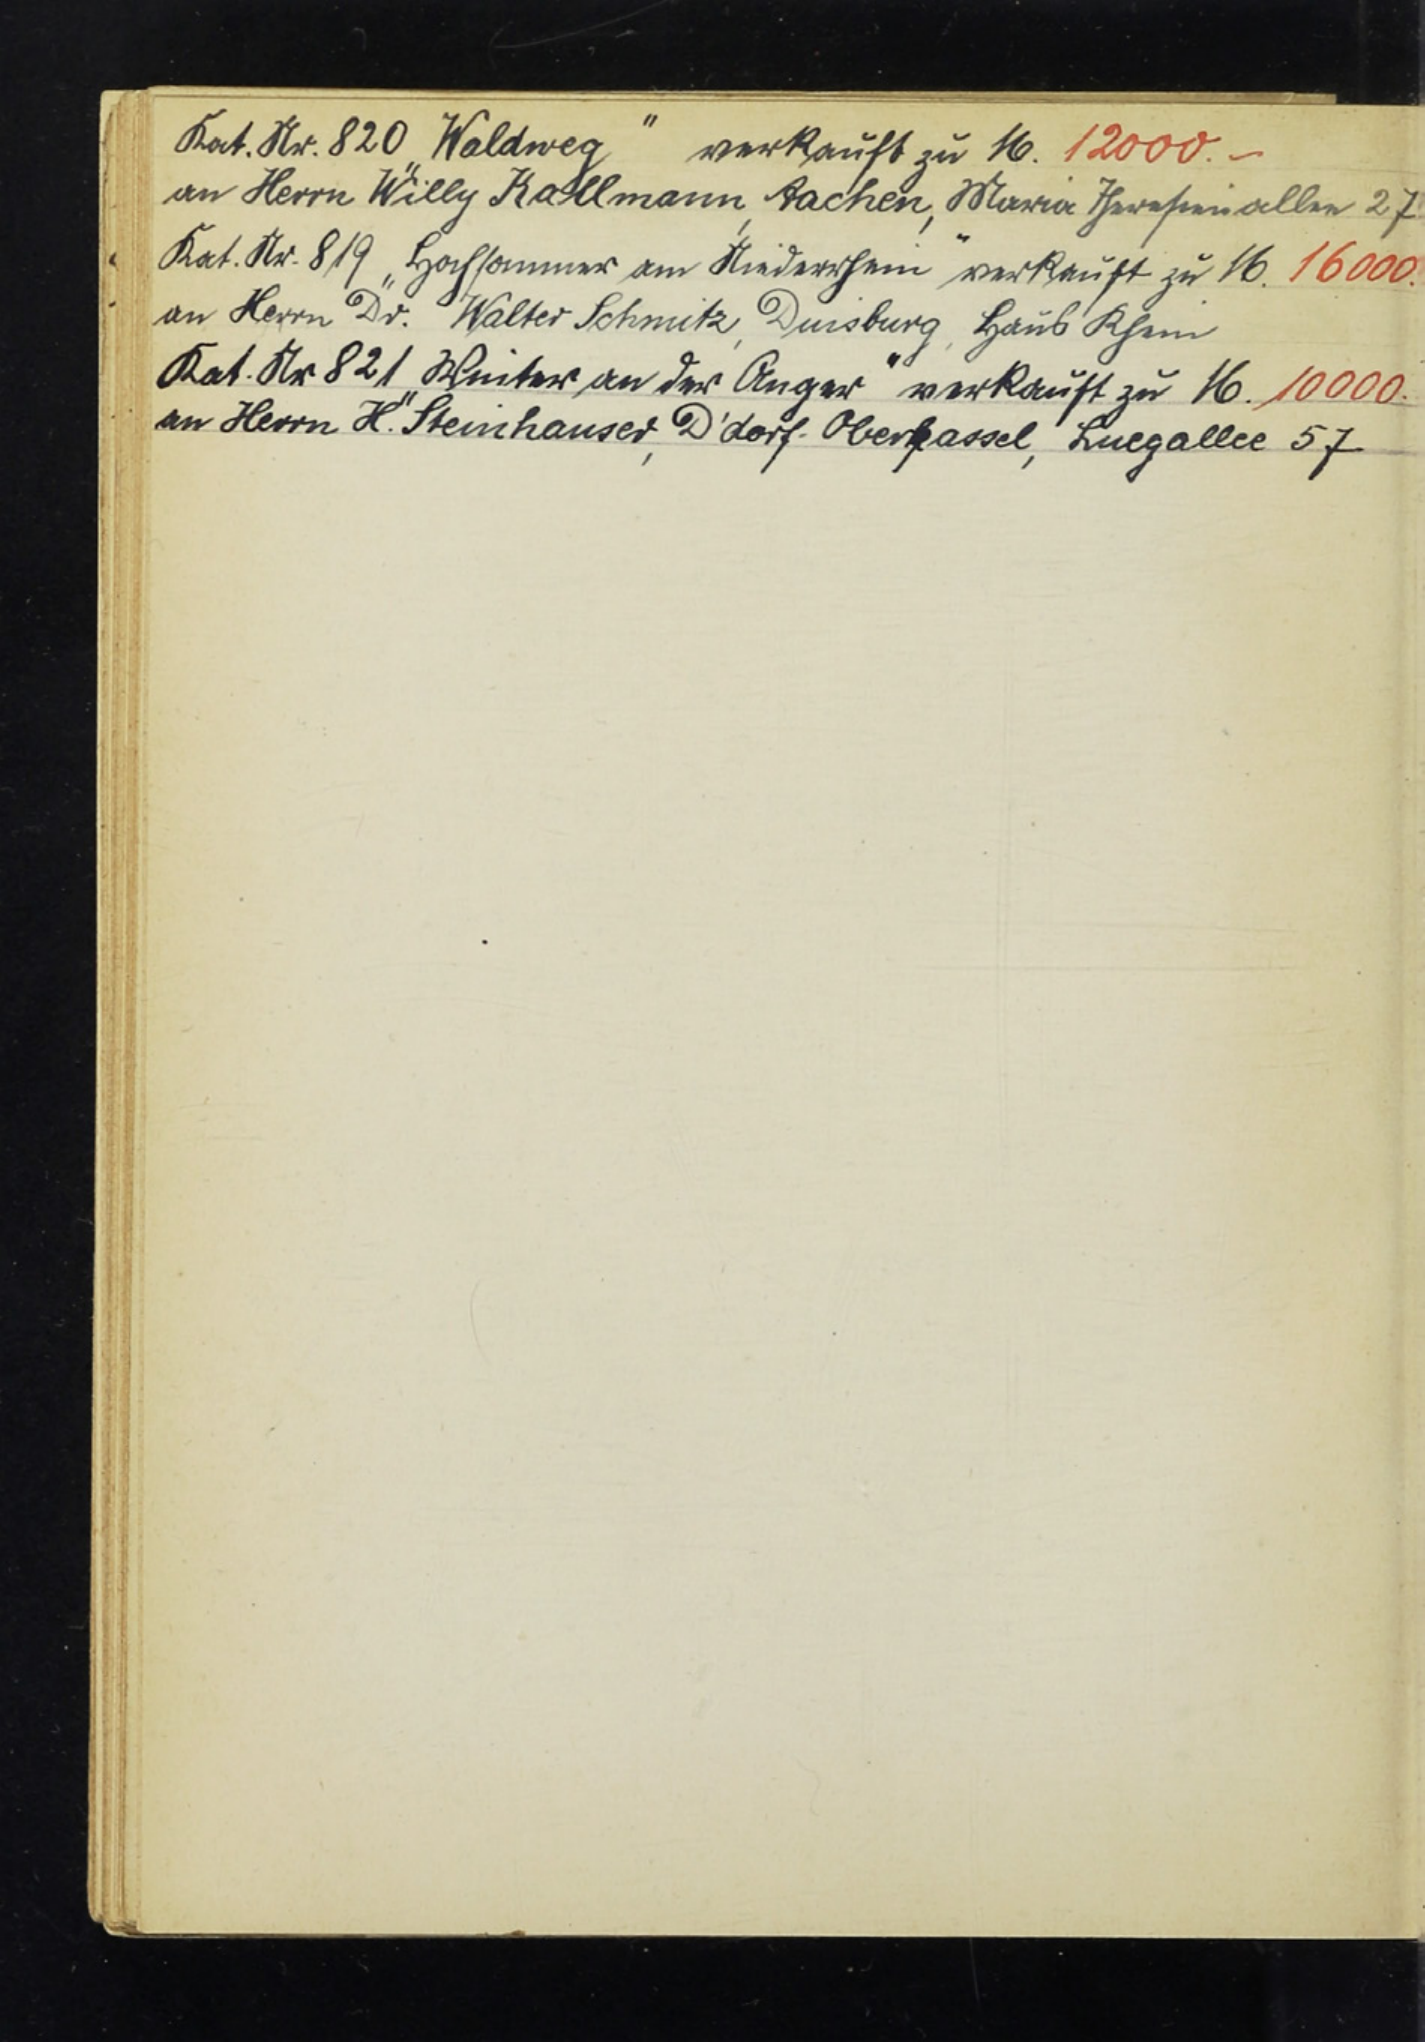 Kat. Nr. 820 „Waldweg" verkauft zu M. 12000.–
an Herrn Willy Kallmann, Aachen, Maria Theresienallee 27
Kat. Nr. 819 „Hochsommer am Niederrhein" verkauft zu M. 16000.
an Herrn Dr. Walter Schmitz, Duisburg, Haus Rhein
Kat. Nr 821 „Winter an der Anger" verkauft zu M. 10000.
an Herrn H. Steinhauser, D'dorf-Oberkassel, Luegallee 57